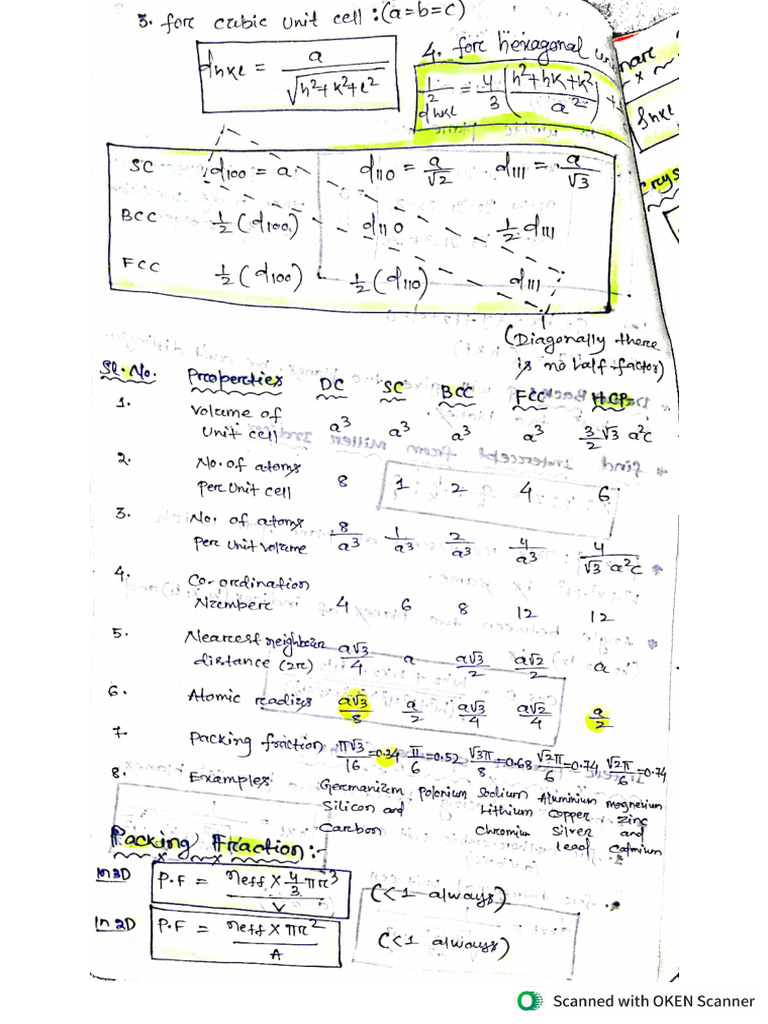 3. for cubic unit cell : (a=b=c)
d_hkl = a / √(h²+k²+l²)
4. for hexagonal
1/d²_hkl = 4/3 ( (h²+hk+k²) / a² ) +
SC d₁₀₀ = a d₁₁₀ = a/√2 d₁₁₁ = a/√3
BCC ½(d₁₀₀) d₁₁₀ ½ d₁₁₁
FCC ½(d₁₀₀) ½(d₁₁₀) d₁₁₁
(Diagonally there
is no half-factor)
Sl.No. Properties DC SC BCC FCC HCP
1. Volume of
unit cell a³ a³ a³ a³ 3/2 √3 a²c
2. No. of atoms
per unit cell 8 1 2 4 6
3. No. of atoms
per unit volume 8/a³ 1/a³ 2/a³ 4/a³ 4/(√3 a²c)
4. Co-ordination
Number 4 6 8 12 12
5. Nearest neighbour
distance (2r) a√3/4 a a√3/2 a√2/2 a
6. Atomic radius a√3/8 a/2 a√3/4 a√2/4 a/2
7. packing fraction π√3/16=0.34 π/6=0.52 √3π/8=0.68 √2π/6=0.74 √2π/6=0.74
8. Examples Germanium polonium Sodium Aluminium magnesium
Silicon and Lithium copper zinc
Carbon Chromium Silver and
lead Cadmium
Packing Fraction:-
In 3D P.F = neff × 4/3 πr³ / V (<1 always)
In 2D P.F = neff × πr² / A (<1 always)
Scanned with OKEN Scanner